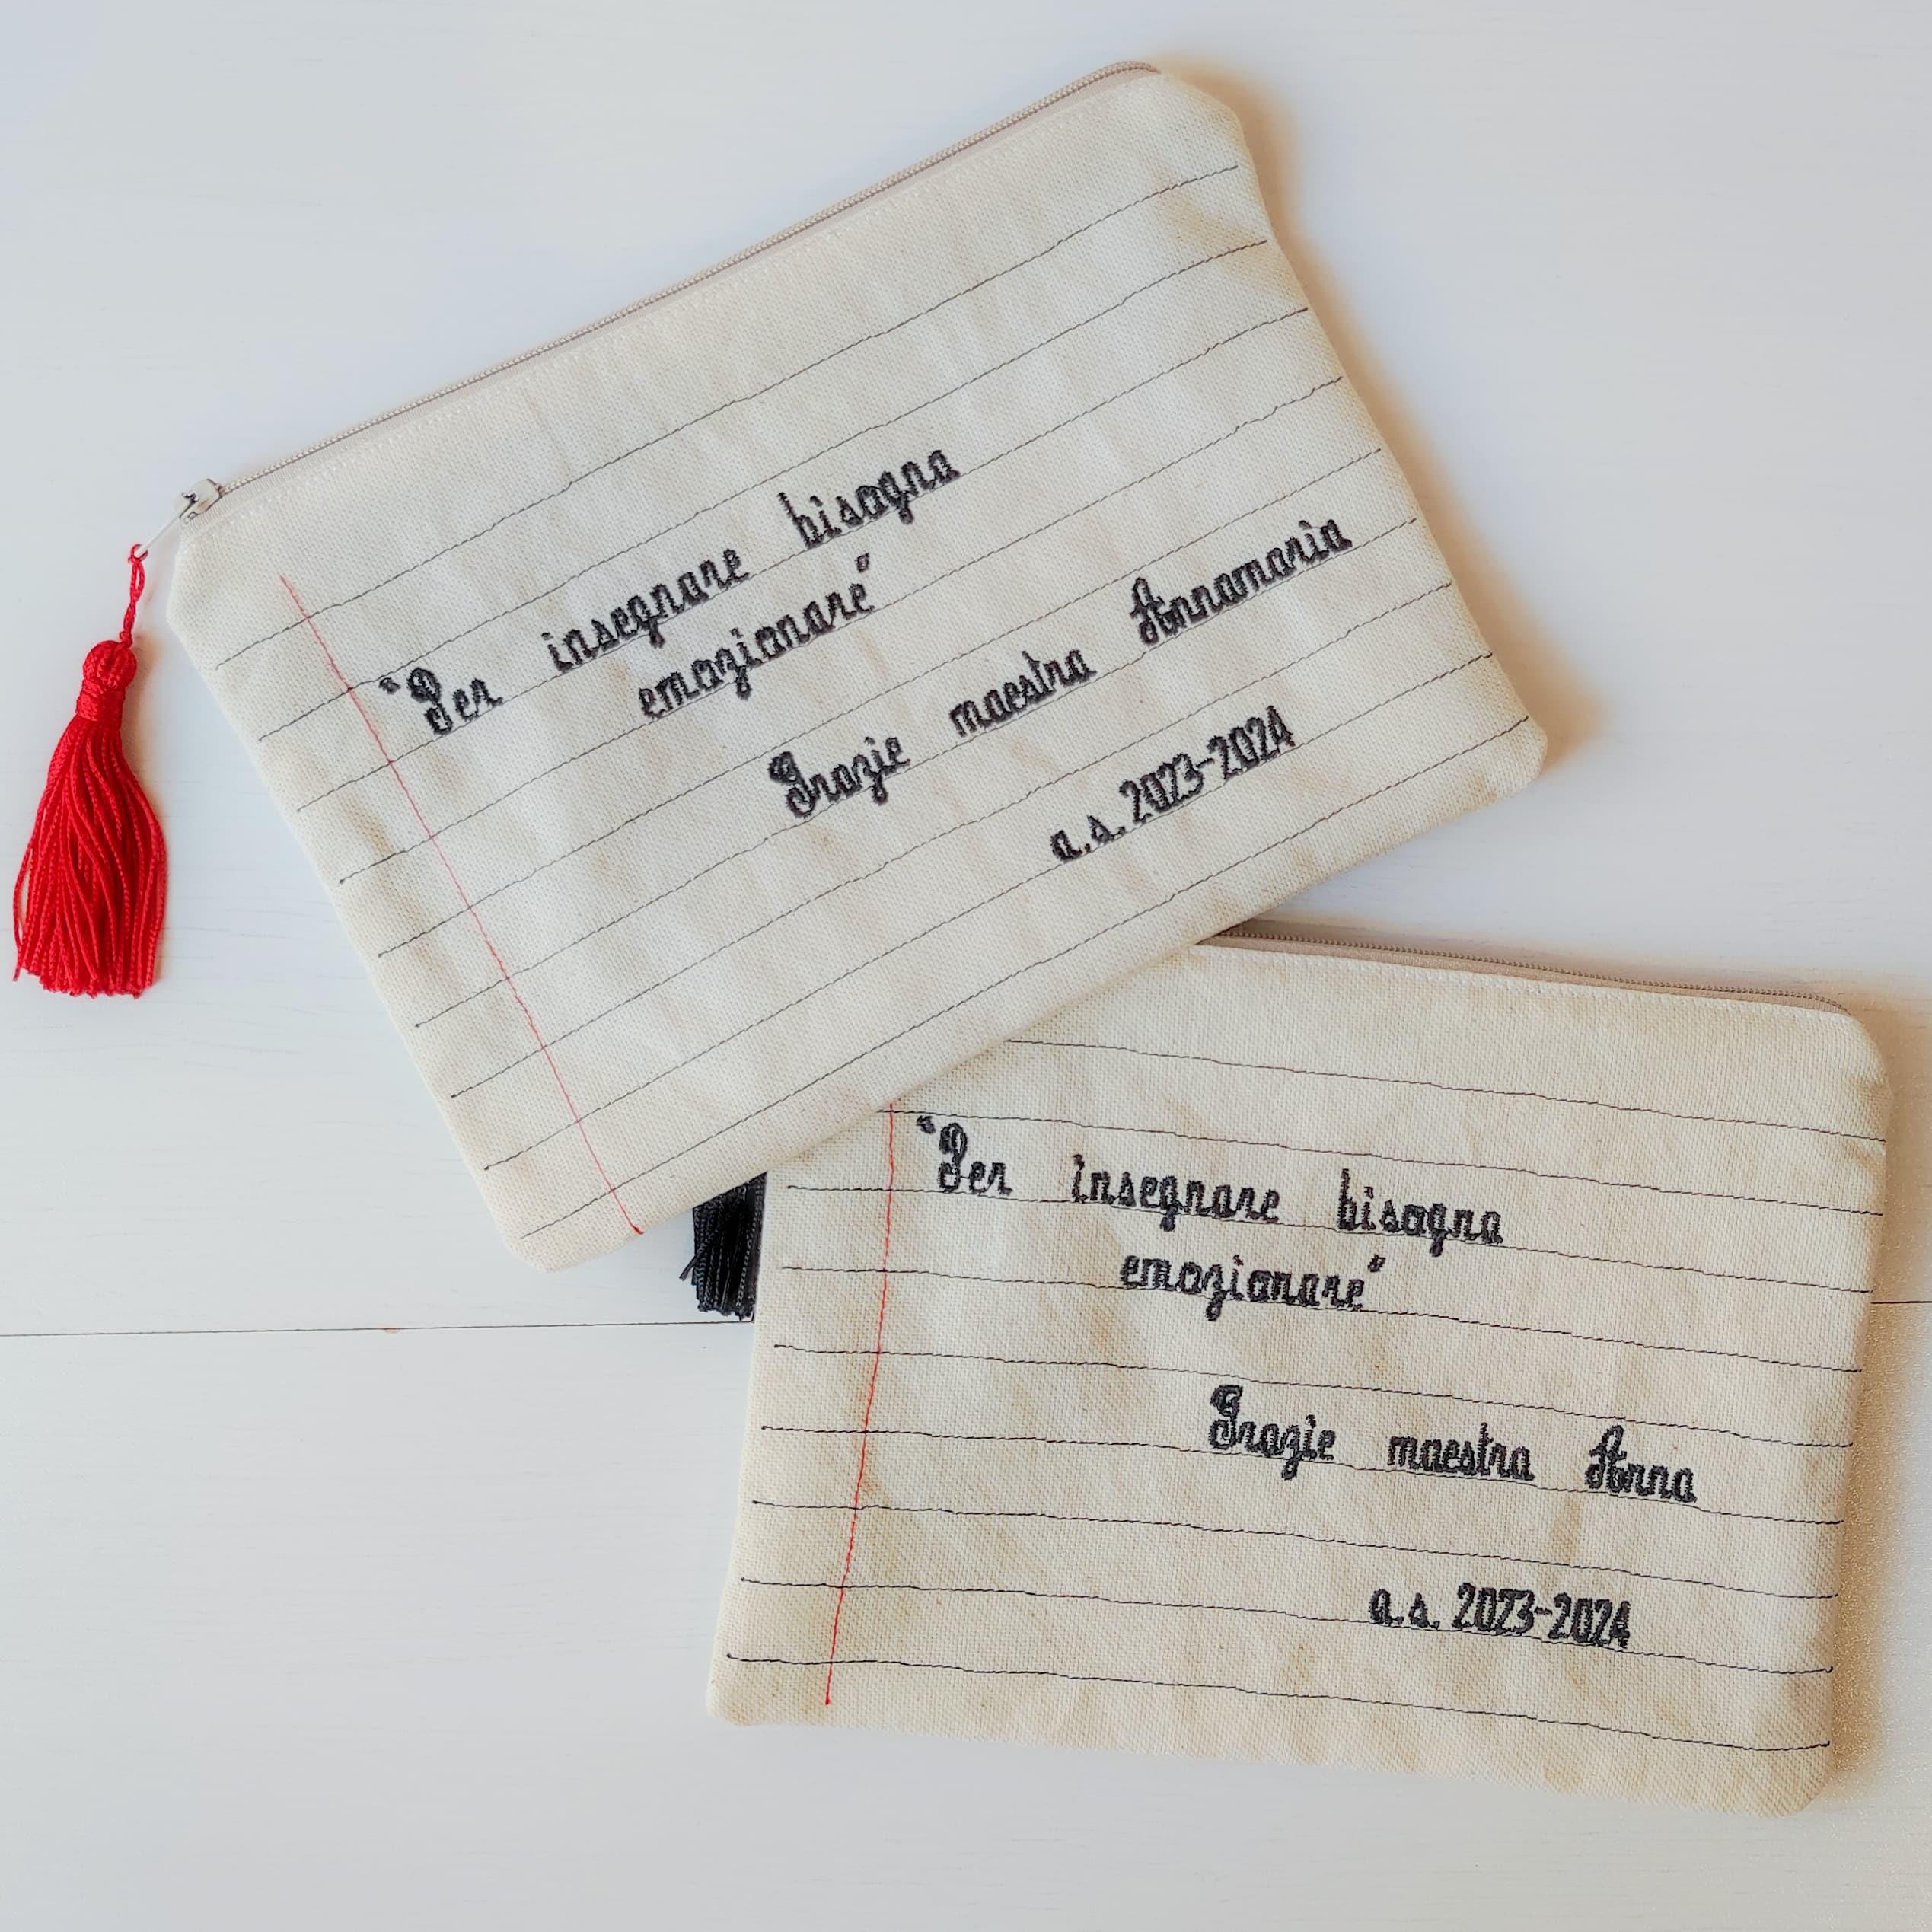 "Per insegnare bisogna
emozionare"
Grazie maestra Annamaria
a.s. 2023-2024
"Per insegnare bisogna
emozionare"
Grazie maestra Anna
a.s. 2023-2024